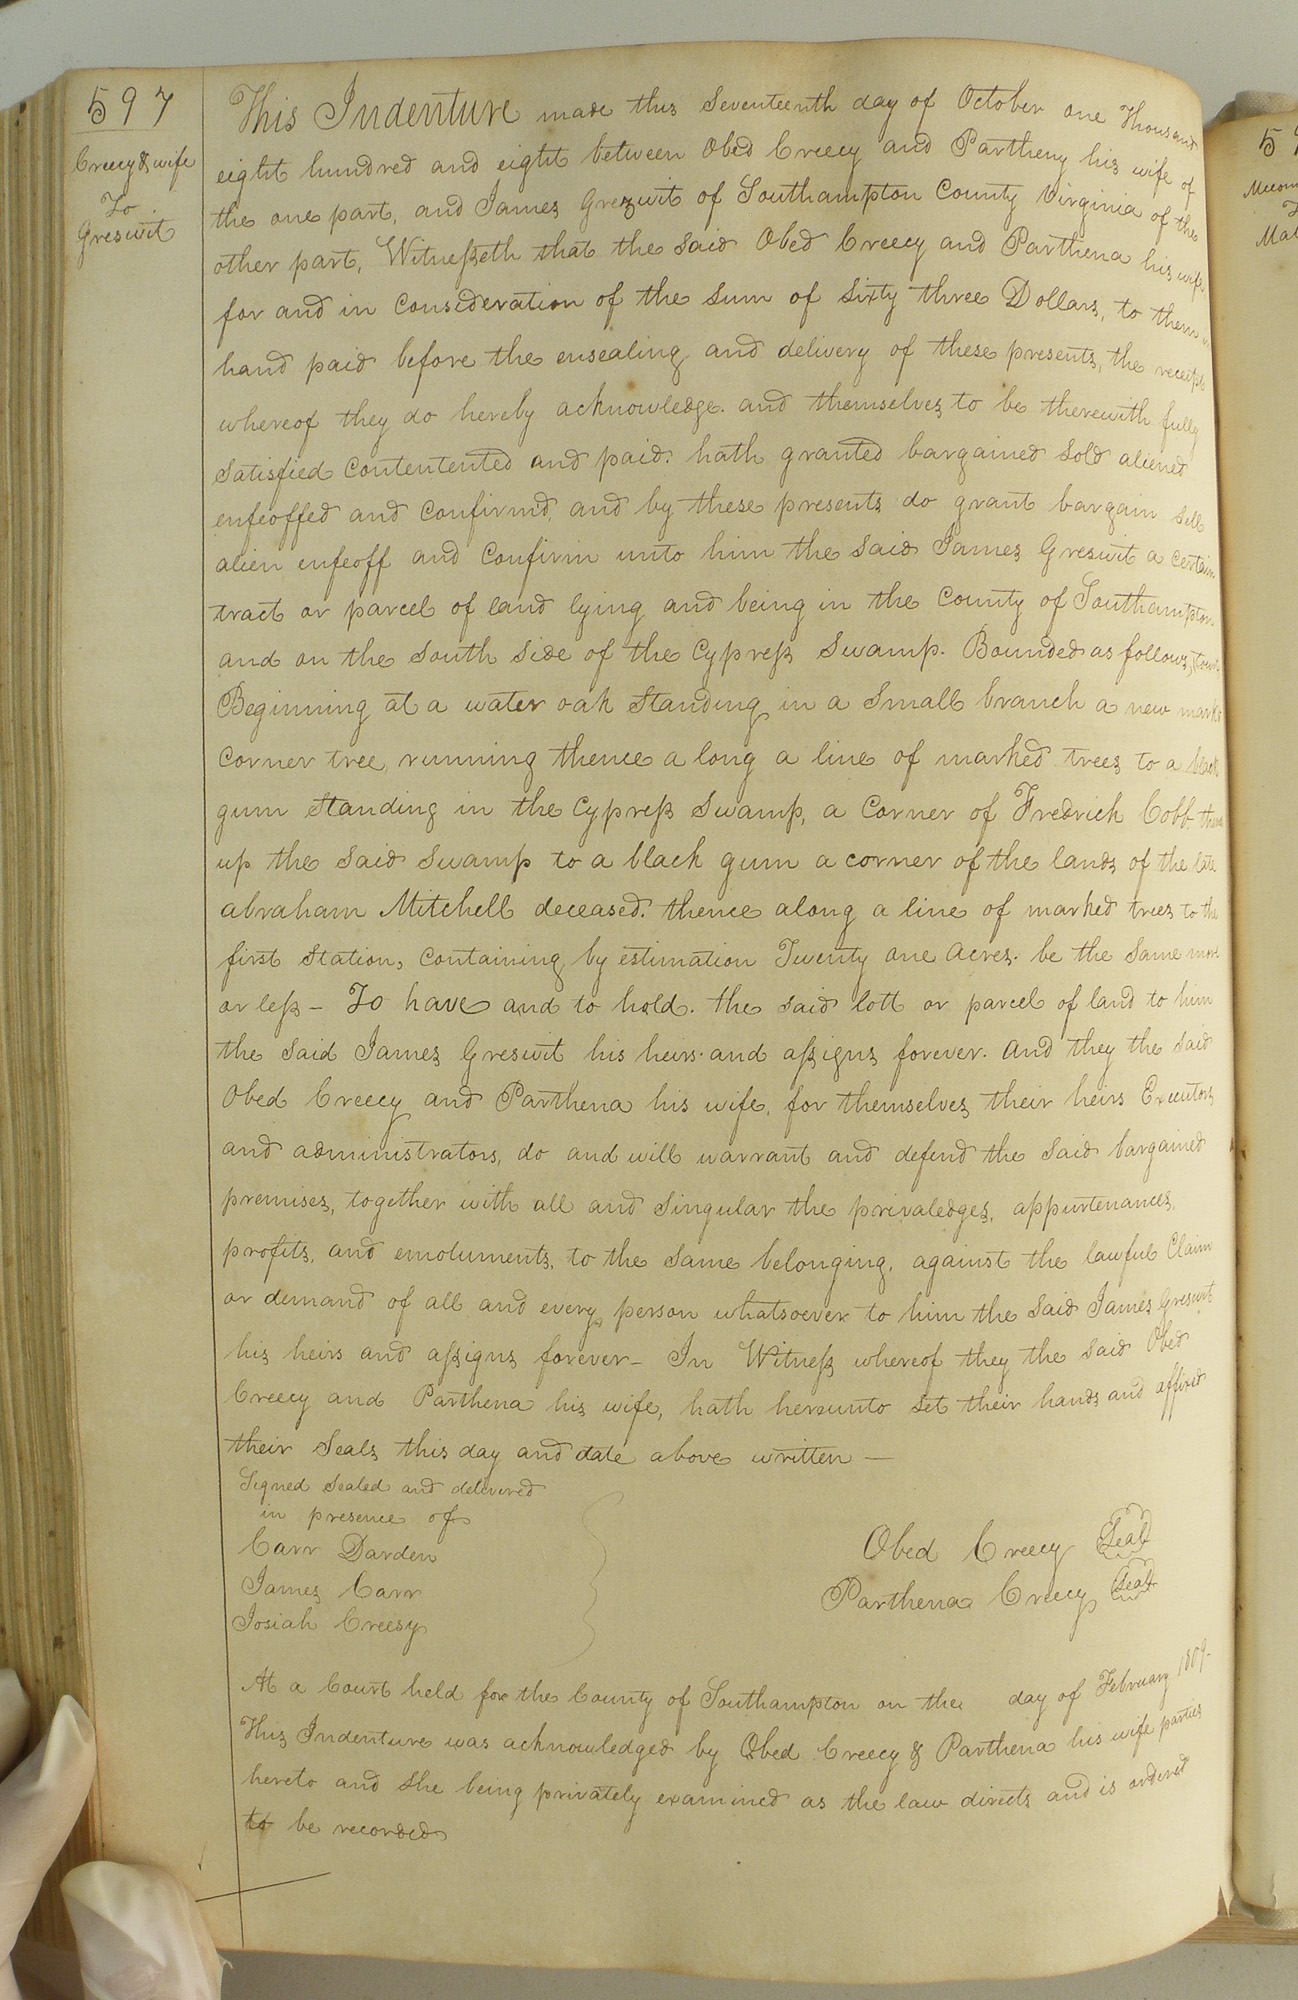 597
Creecy & wife
To
Greswit
This Indenture made this Seventeenth day of October one Thousand
eight hundred and eight between Obed Creecy and Partheny his wife of
the one part, and James Grezwit of Southampton County Virginia of the
other part, Witnesseth that the said Obed Creecy and Parthena his wife
for and in consideration of the sum of sixty three Dollars, to them in
hand paid before the ensealing and delivery of these presents, the receipt
whereof they do hereby acknowledge. and themselves to be therewith fully
satisfied contentented and paid. hath granted bargained sold aliened
enfeoffed and confirmd, and by these presents do grant bargain sell
alien enfeoff and confirm unto him the said James Greswit a certain
tract or parcel of land lying and being in the County of Southampton
and on the south side of the Cypress Swamp. Bounded as follows, towit
Beginning at a water oak standing in a small branch a new markd
corner tree, running thence a long a line of marked trees to a black
gum standing in the Cypress Swamp, a corner of Fredrick Cobb thence
up the said swamp to a black gum a corner of the lands of the late
abraham Mitchell deceased. thence along a line of marked trees to the
first station, containing by estimation Twenty one acres. be the same more
or less - To have and to hold. the said lott or parcel of land to him
the said James Greswit his heirs and assigns forever. And they the said
Obed Creecy and Parthena his wife, for themselves their heirs Executors
and administrators, do and will warrant and defend the said bargained
premises, together with all and singular the privaledges, appurtenances,
profits, and emoluments, to the same belonging, against the lawful Claim
or demand of all and every person whatsoever to him the said James Greswit
his heirs and assigns forever - In Witness whereof they the said Obed
Creecy and Parthena his wife, hath hereunto set their hands and affixed
their seals this day and date above written —
Signed sealed and delivered
in presence of
Carr Darden
James Carr
Josiah Creesy
Obed Creecy Seal
Parthena Creecy Seal
At a Court held for the County of Southampton on the day of February 1809-
This Indenture was acknowledged by Obed Creecy & Parthena his wife parties
hereto and she being privately examined as the law directs and is ordered
to be recorded
5
To
Mal